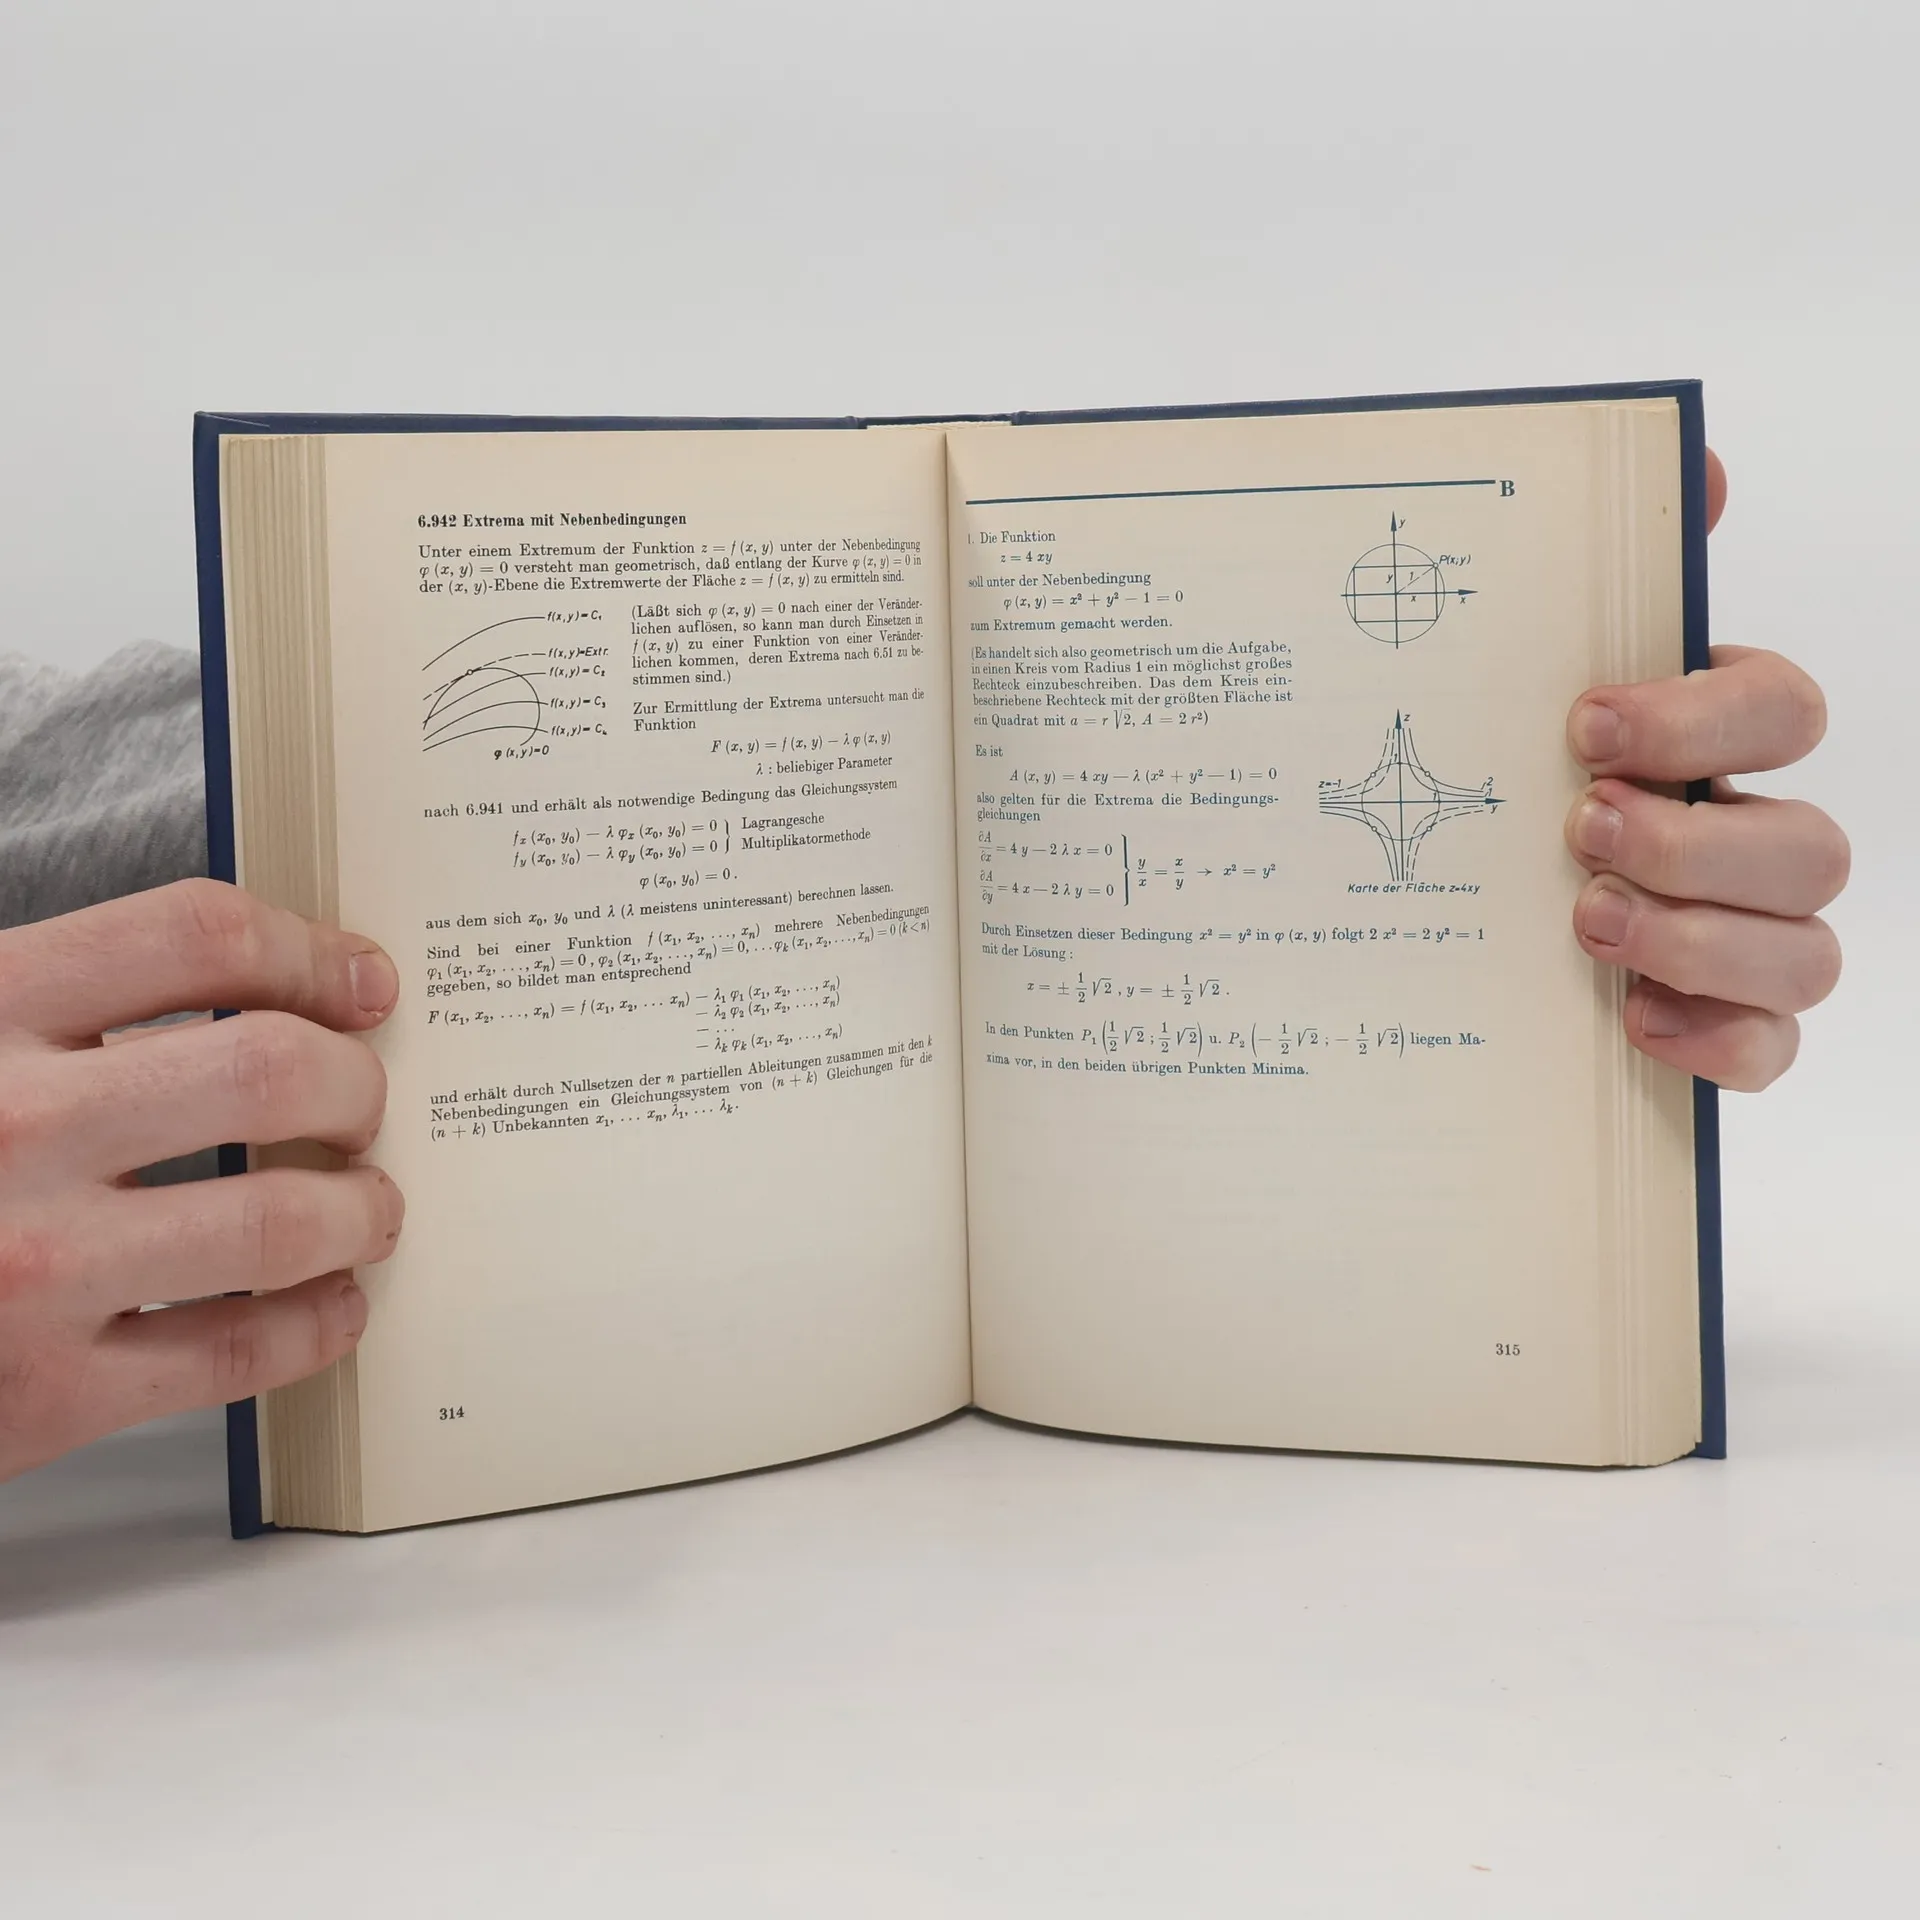 6.942 Extrema mit Nebenbedingungen
Unter einem Extremum der Funktion z = f (x, y) unter der Nebenbedingung
φ (x, y) = 0 versteht man geometrisch, daß entlang der Kurve φ (x, y) = 0 in
der (x, y)-Ebene die Extremwerte der Fläche z = f (x, y) zu ermitteln sind.
f(x,y)=C₁
f(x,y)=Extr.
f(x,y)=C₂
f(x,y)=C₃
f(x,y)=C₄
φ(x,y)=0
(Läßt sich φ (x, y) = 0 nach einer der Veränder-
lichen auflösen, so kann man durch Einsetzen in
f (x, y) zu einer Funktion von einer Veränder-
lichen kommen, deren Extrema nach 6.51 zu be-
stimmen sind.)
Zur Ermittlung der Extrema untersucht man die
Funktion
F (x, y) = f (x, y) — λ φ (x, y)
λ : beliebiger Parameter
nach 6.941 und erhält als notwendige Bedingung das Gleichungssystem
fₓ (x₀, y₀) — λ φₓ (x₀, y₀) = 0 } Lagrangesche
f_y (x₀, y₀) — λ φ_y (x₀, y₀) = 0 } Multiplikatormethode
φ (x₀, y₀) = 0 .
aus dem sich x₀, y₀ und λ (λ meistens uninteressant) berechnen lassen.
Sind bei einer Funktion f (x₁, x₂, ..., xₙ) mehrere Nebenbedingungen
φ₁ (x₁, x₂, ..., xₙ) = 0 , φ₂ (x₁, x₂, ..., xₙ) = 0, ... φₖ (x₁, x₂, ..., xₙ) = 0 (k < n)
gegeben, so bildet man entsprechend
F (x₁, x₂, ..., xₙ) = f (x₁, x₂, ... xₙ) — λ₁ φ₁ (x₁, x₂, ..., xₙ)
— λ₂ φ₂ (x₁, x₂, ..., xₙ)
— ...
— λₖ φₖ (x₁, x₂, ..., xₙ)
und erhält durch Nullsetzen der n partiellen Ableitungen zusammen mit den k
Nebenbedingungen ein Gleichungssystem von (n + k) Gleichungen für die
(n + k) Unbekannten x₁, ... xₙ, λ₁, ... λₖ.
314
B
1. Die Funktion
z = 4 xy
soll unter der Nebenbedingung
φ (x, y) = x² + y² — 1 = 0
zum Extremum gemacht werden.
y
P(x;y)
y
1
x
x
(Es handelt sich also geometrisch um die Aufgabe,
in einen Kreis vom Radius 1 ein möglichst großes
Rechteck einzubeschreiben. Das dem Kreis ein-
beschriebene Rechteck mit der größten Fläche ist
ein Quadrat mit a = r √2, A = 2 r²)
Es ist
A (x, y) = 4 xy — λ (x² + y² — 1) = 0
also gelten für die Extrema die Bedingungs-
gleichungen
∂A/∂x = 4 y — 2 λ x = 0
∂A/∂y = 4 x — 2 λ y = 0 } y/x = x/y → x² = y²
z
1
z=-1
2
1
1
y
Karte der Fläche z=4xy
Durch Einsetzen dieser Bedingung x² = y² in φ (x, y) folgt 2 x² = 2 y² = 1
mit der Lösung :
x = ± 1/2 √2 , y = ± 1/2 √2 .
In den Punkten P₁ (1/2 √2 ; 1/2 √2) u. P₂ (— 1/2 √2 ; — 1/2 √2) liegen Ma-
xima vor, in den beiden übrigen Punkten Minima.
315